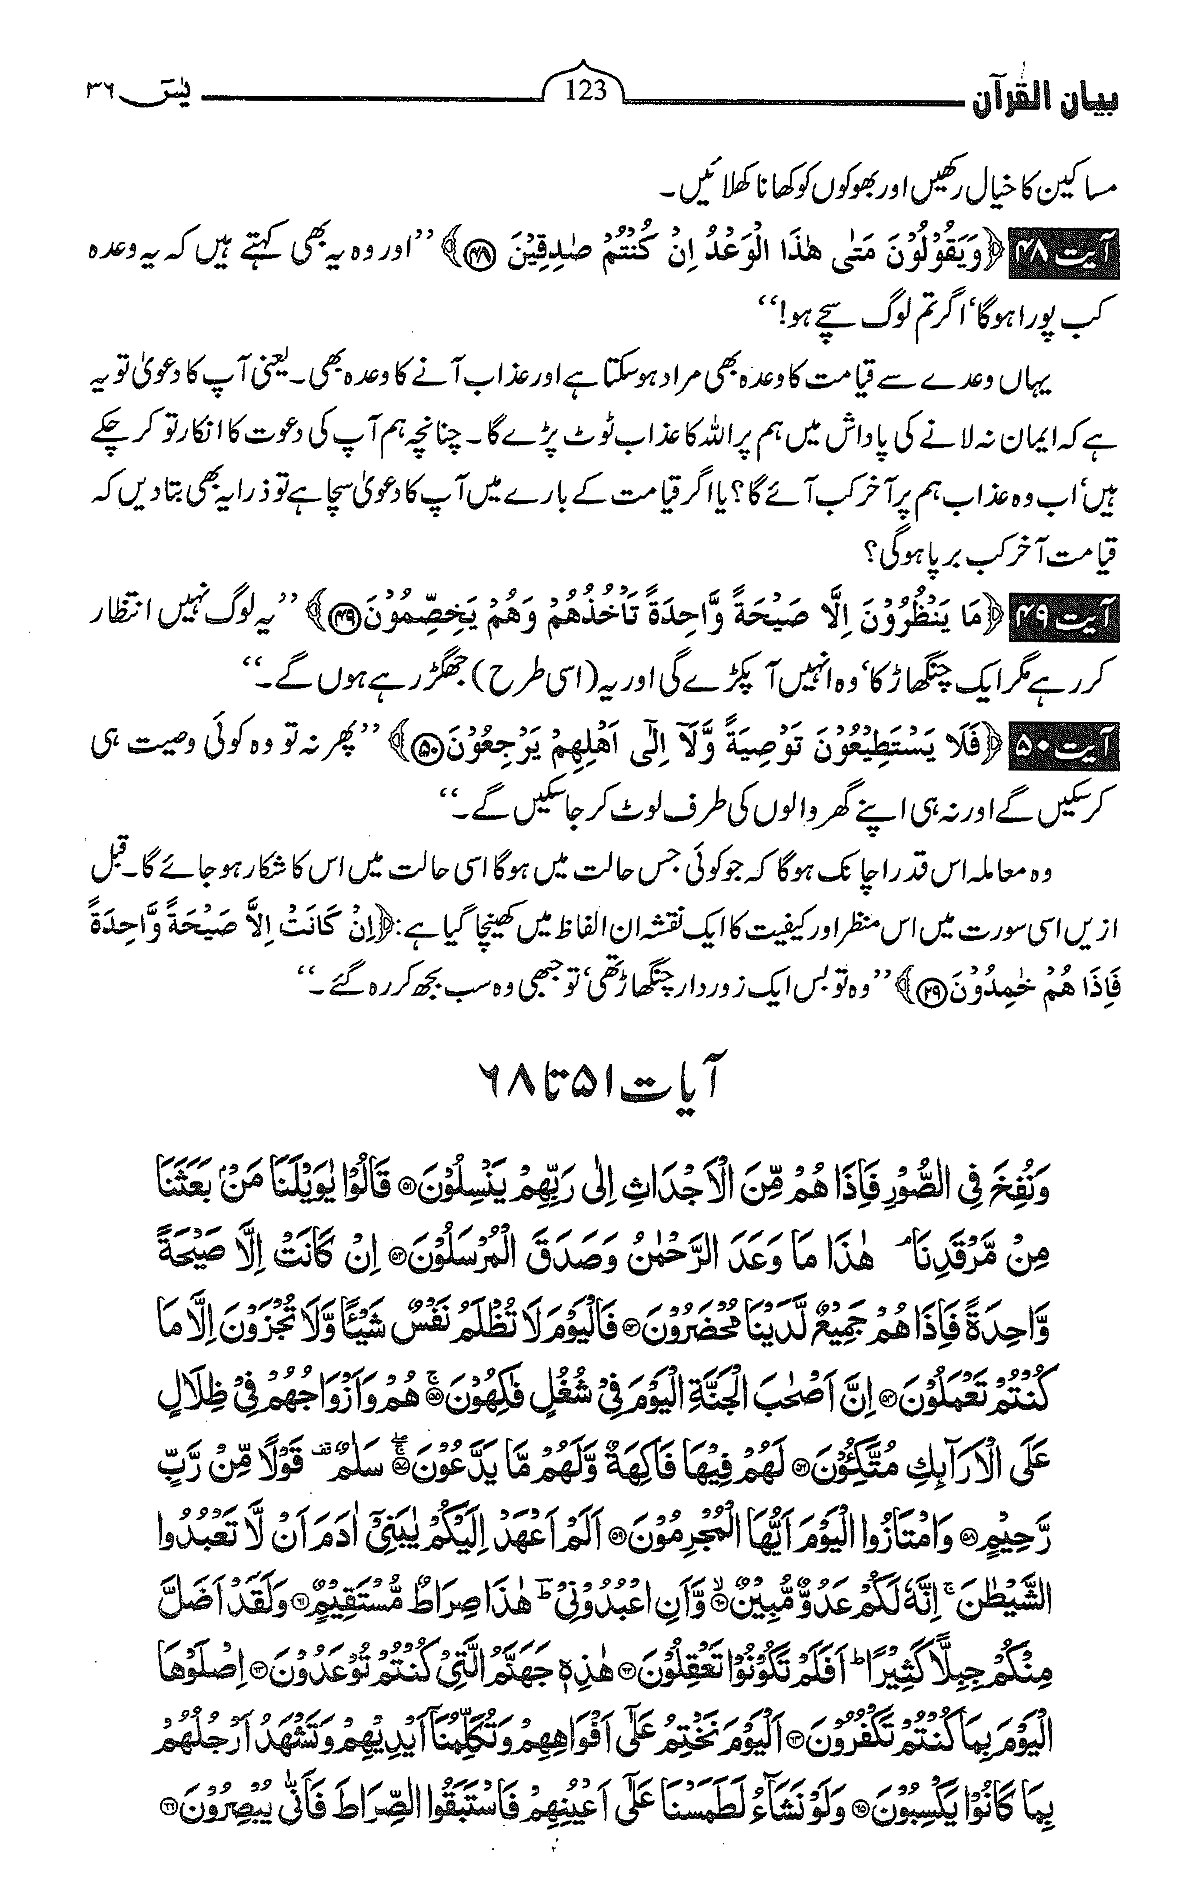 بیان القرآن 123 یٰسٓ ۳۶
مساکین کا خیال رکھیں اور بھوکوں کو کھانا کھلائیں۔
آیت ۴۸ ﴿وَیَقُوْلُوْنَ مَتٰی هٰذَا الْوَعْدُ اِنْ كُنْتُمْ صٰدِقِیْنَ ﴿۴۸﴾﴾ ’’اور وہ یہ بھی کہتے ہیں کہ یہ وعدہ
کب پورا ہوگا‘ اگر تم لوگ سچے ہو!‘‘
یہاں وعدے سے قیامت کا وعدہ بھی مراد ہو سکتا ہے اور عذاب آنے کا وعدہ بھی۔ یعنی آپ کا دعویٰ تو یہ
ہے کہ ایمان نہ لانے کی پاداش میں ہم پر اللہ کا عذاب ٹوٹ پڑے گا۔ چنانچہ ہم آپ کی دعوت کا انکار تو کر چکے
ہیں‘ اب وہ عذاب ہم پر آخر کب آئے گا؟ یا اگر قیامت کے بارے میں آپ کا دعویٰ سچا ہے تو ذرا یہ بھی بتا دیں کہ
قیامت آخر کب برپا ہوگی؟
آیت ۴۹ ﴿مَا یَنْظُرُوْنَ اِلَّا صَیْحَةً وَّاحِدَةً تَاْخُذُهُمْ وَهُمْ یَخِصِّمُوْنَ ﴿۴۹﴾﴾ ’’یہ لوگ نہیں انتظار
کر رہے مگر ایک چنگھاڑ کا‘ وہ انہیں آ پکڑے گی اور یہ (اسی طرح) جھگڑ رہے ہوں گے۔‘‘
آیت ۵۰ ﴿فَلَا یَسْتَطِیْعُوْنَ تَوْصِیَةً وَّلَآ اِلٰٓی اَهْلِهِمْ یَرْجِعُوْنَ ﴿۵۰﴾﴾ ’’پھر نہ تو وہ کوئی وصیت ہی
کر سکیں گے اور نہ ہی اپنے گھر والوں کی طرف لوٹ کر جا سکیں گے۔‘‘
وہ معاملہ اس قدر اچانک ہوگا کہ جو کوئی جس حالت میں ہوگا اسی حالت میں اس کا شکار ہو جائے گا۔ قبل
ازیں اسی سورت میں اس منظر اور کیفیت کا ایک نقشہ ان الفاظ میں کھینچا گیا ہے: ﴿اِنْ كَانَتْ اِلَّا صَیْحَةً وَّاحِدَةً
فَاِذَا هُمْ خٰمِدُوْنَ ﴿۲۹﴾﴾ ’’وہ تو بس ایک زوردار چنگھاڑ تھی‘ تو جبھی وہ سب بجھ کر رہ گئے۔‘‘
آیات ۵۱ تا ۶۸
وَنُفِخَ فِی الصُّوْرِ فَاِذَا هُمْ مِّنَ الْاَجْدَاثِ اِلٰی رَبِّهِمْ یَنْسِلُوْنَ ﴿۵۱﴾ قَالُوْا یٰوَیْلَنَا مَنْۢ بَعَثَنَا
مِنْ مَّرْقَدِنَا ۘ هٰذَا مَا وَعَدَ الرَّحْمٰنُ وَصَدَقَ الْمُرْسَلُوْنَ ﴿۵۲﴾ اِنْ كَانَتْ اِلَّا صَیْحَةً
وَّاحِدَةً فَاِذَا هُمْ جَمِیْعٌ لَّدَیْنَا مُحْضَرُوْنَ ﴿۵۳﴾ فَالْیَوْمَ لَا تُظْلَمُ نَفْسٌ شَیْئًا وَّلَا تُجْزَوْنَ اِلَّا مَا
كُنْتُمْ تَعْمَلُوْنَ ﴿۵۴﴾ اِنَّ اَصْحٰبَ الْجَنَّةِ الْیَوْمَ فِیْ شُغُلٍ فٰكِهُوْنَ ﴿۵۵﴾ۚ هُمْ وَاَزْوَاجُهُمْ فِیْ ظِلٰلٍ
عَلَی الْاَرَآىِٕكِ مُتَّكِـُٔوْنَ ﴿۵۶﴾ لَهُمْ فِیْهَا فَاكِهَةٌ وَّلَهُمْ مَّا یَدَّعُوْنَ ﴿۵۷﴾ۚ سَلٰمٌ ۫ قَوْلًا مِّنْ رَّبٍّ
رَّحِیْمٍ ﴿۵۸﴾ وَامْتَازُوا الْیَوْمَ اَیُّهَا الْمُجْرِمُوْنَ ﴿۵۹﴾ اَلَمْ اَعْهَدْ اِلَیْكُمْ یٰبَنِیْٓ اٰدَمَ اَنْ لَّا تَعْبُدُوا
الشَّیْطٰنَ ۚ اِنَّهٗ لَكُمْ عَدُوٌّ مُّبِیْنٌ ﴿۶۰﴾ۙ وَّاَنِ اعْبُدُوْنِیْ ؕ هٰذَا صِرَاطٌ مُّسْتَقِیْمٌ ﴿۶۱﴾ وَلَقَدْ اَضَلَّ
مِنْكُمْ جِبِلًّا كَثِیْرًا ؕ اَفَلَمْ تَكُوْنُوْا تَعْقِلُوْنَ ﴿۶۲﴾ هٰذِهٖ جَهَنَّمُ الَّتِیْ كُنْتُمْ تُوْعَدُوْنَ ﴿۶۳﴾ اِصْلَوْهَا
الْیَوْمَ بِمَا كُنْتُمْ تَكْفُرُوْنَ ﴿۶۴﴾ اَلْیَوْمَ نَخْتِمُ عَلٰٓی اَفْوَاهِهِمْ وَتُكَلِّمُنَاۤ اَیْدِیْهِمْ وَتَشْهَدُ اَرْجُلُهُمْ
بِمَا كَانُوْا یَكْسِبُوْنَ ﴿۶۵﴾ وَلَوْ نَشَآءُ لَطَمَسْنَا عَلٰٓی اَعْیُنِهِمْ فَاسْتَبَقُوا الصِّرَاطَ فَاَنّٰی یُبْصِرُوْنَ ﴿۶۶﴾